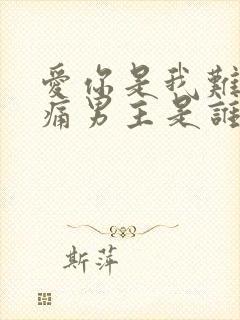 愛你是我難
痛男主是誰
斯萍